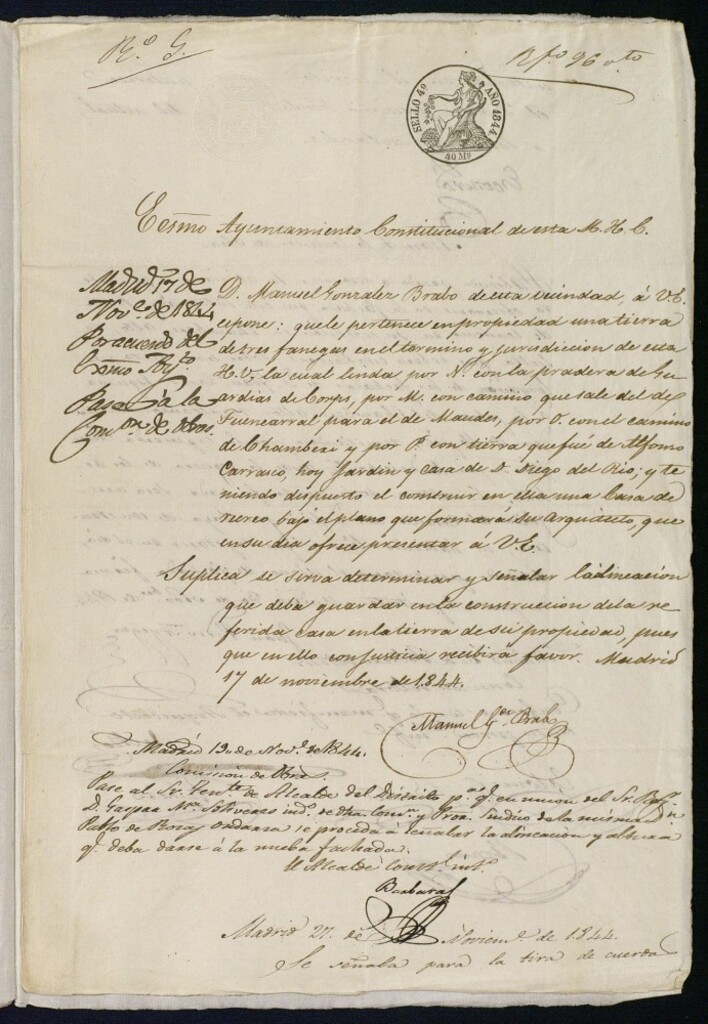 Rº G.
Rfo 96 vto
SELLO 4º AÑO 1844
40 Ms
Ecsmo Ayuntamiento Constitucional de esta M. H. C.
Madrid 17 de
Nove de 1844
Por acuerdo del
Ecsmo Aytº
Pase a la
Comon de obras.
D. Manuel Gonzalez Brabo de esta vecindad, á V.E.
espone: que le pertenece en propiedad una tierra
de tres fanegas en el termino y jurisdiccion de esta
H. V. la cual linda por N. con la pradera de Gu
ardias de Corps, por M. con camino que sale del de
Fuencarral para el de Maudes, por O. con el camino
de Chamberi y por P. con tierra que fué de Alfonso
Carrasco, hoy Jardin y Casa de D. Diego del Rio; y te
niendo dispuesto el construir en ella una Casa de
recreo bajo el plano que formará su Arquitecto, que
en su dia ofrece presentar á V.E.
Suplica se sirva determinar y señalar la alineacion
que deba guardar en la construccion de la re
ferida casa en la tierra de su propiedad, pues
que en ello con justicia recibirá favor. Madrid
17 de noviembre de 1844.
Manuel Gez Brabo
Madrid 19 de Nove de 1844.
Comision de Obras.
Pase al Sr. Tente de Alcalde del Distrito pª q. en union del Sr.
D. Gaspar Mª Soliveres indº de dha Comon y Pror. Sindico de la misma Dn
Pablo de se proceda á señalar la alineacion y altura
q. deba darse á la nueba fachada.
El Alcalde Constl intº
Madrid 27 de Noviemе de 1844.
Se señala para la tira de cuerda